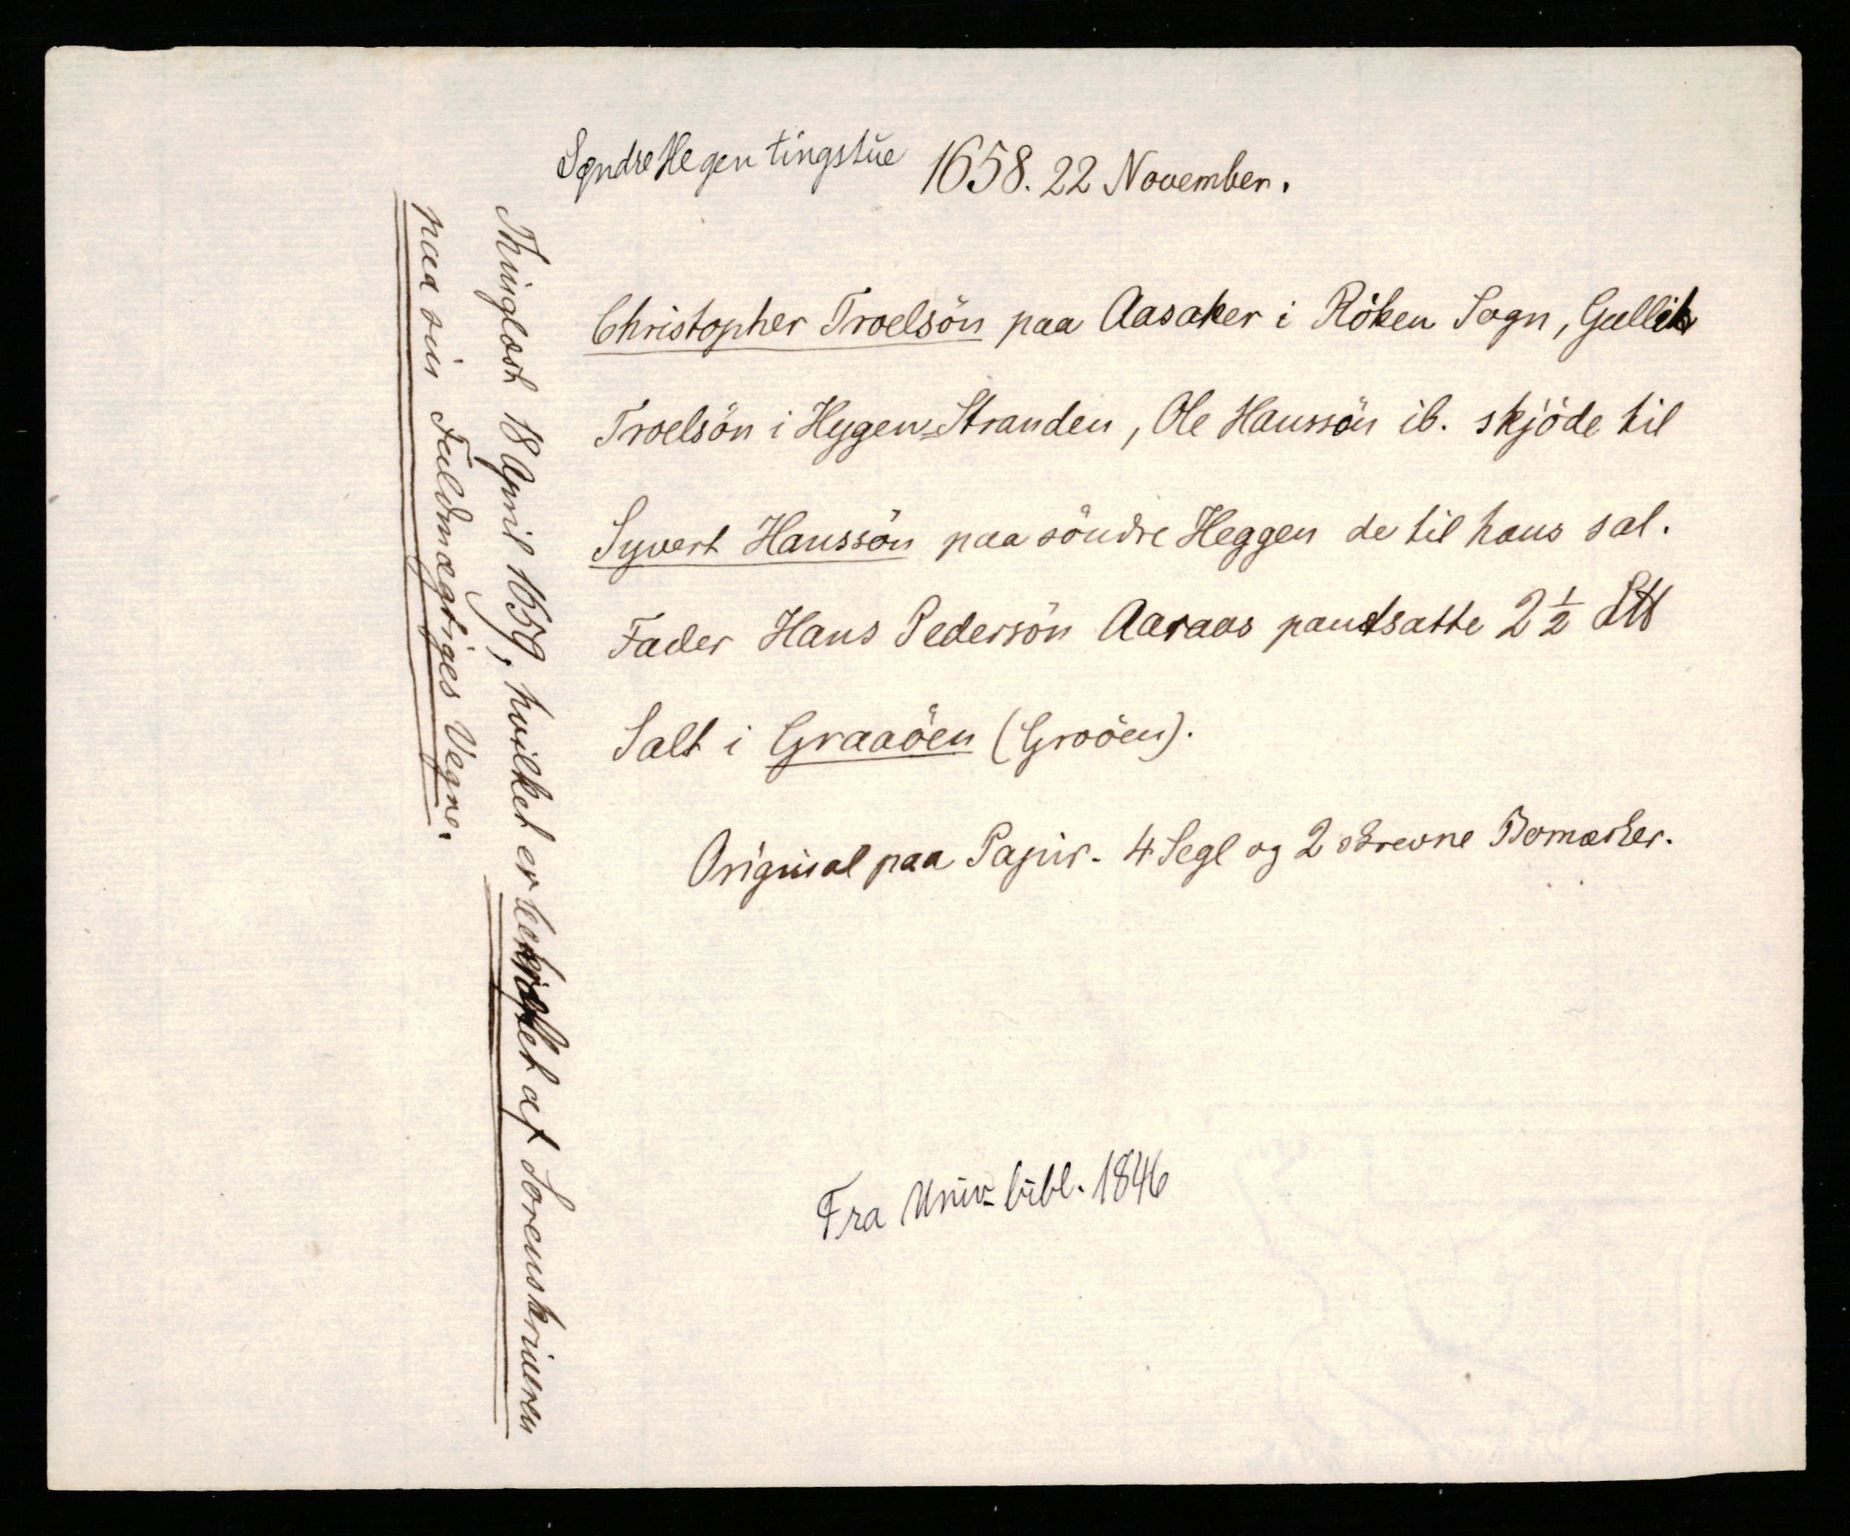 Søndre Hegen tingstue 1658. 22 November.
Christopher Troelsön paa Aasaker i Röken Sogn, Gullik
Troelsön i Hygen-Stranden, Ole Hanssön ib. skjöde til
Syvert Hanssön paa söndre Heggen de til hans sal.
Fader Hans Pedersön Aaraas pantsatte 2 1/2 
Salt i Graaöen (Groöen).
Original paa Papir. 4 Segl og 2 skrevne Bomærker.
Fra Univ-bibl. 1846
Thinglæst 18 April 1659, hvilket er bekræftet af Sorenskriveren
paa sin Fuldmægtiges Vegne.